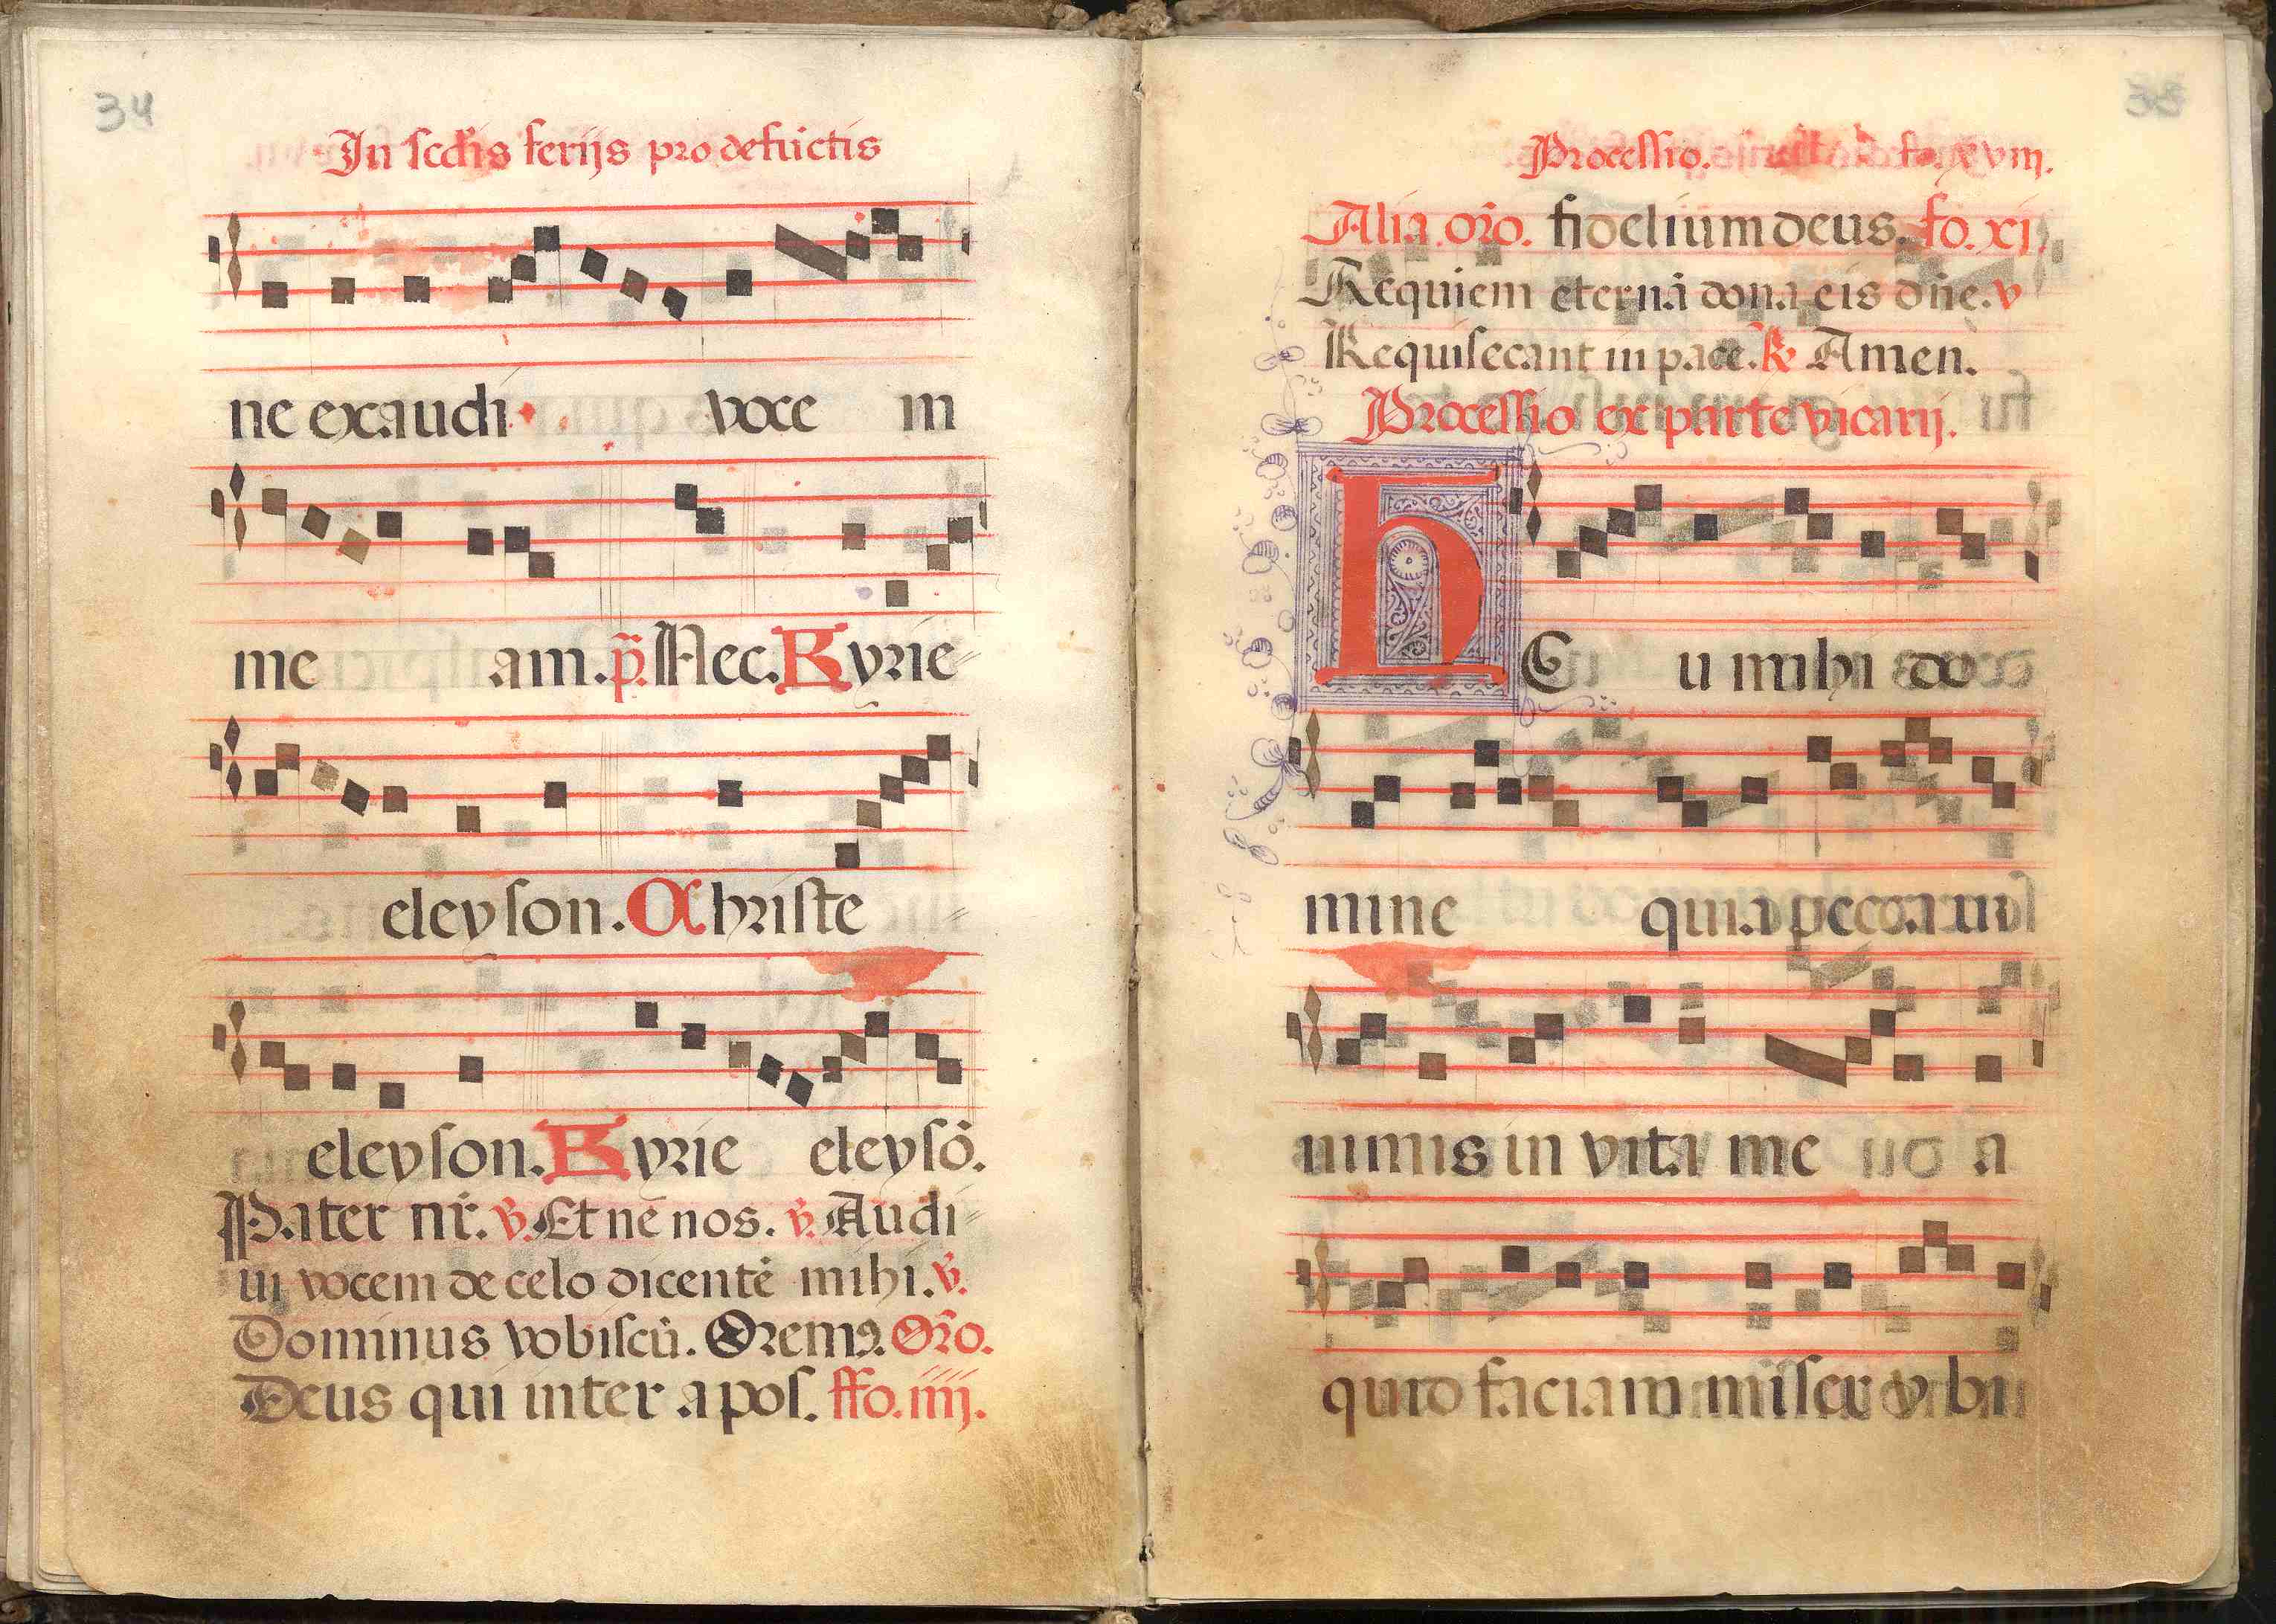 34
In scd̄is ferijs pro defūctis
ne exaudi voce in
me am. p̄. Nec. Kyrie
eleyson. Christe
eleyson. Kyrie eleysō.
Pater nr̄. ṽ. Et nē nos. ṽ. Audi
ui vocem de celo dicentē mihi. ṽ.
Dominus vobiscū. Oremꝰ. Or̄o.
Deus qui inter apos. ffo. iiij.
Processio. fo. xviij.
Alia or̄o. fidelium deus. fo. xi
Requiem eternā dona eis dn̄e. v
Requiescant in pace. ℟ Amen.
Processio ex parte vicarij.
hEu mihi do
mine quia peccaui
nimis in vita me a
quid faciam miser vbi